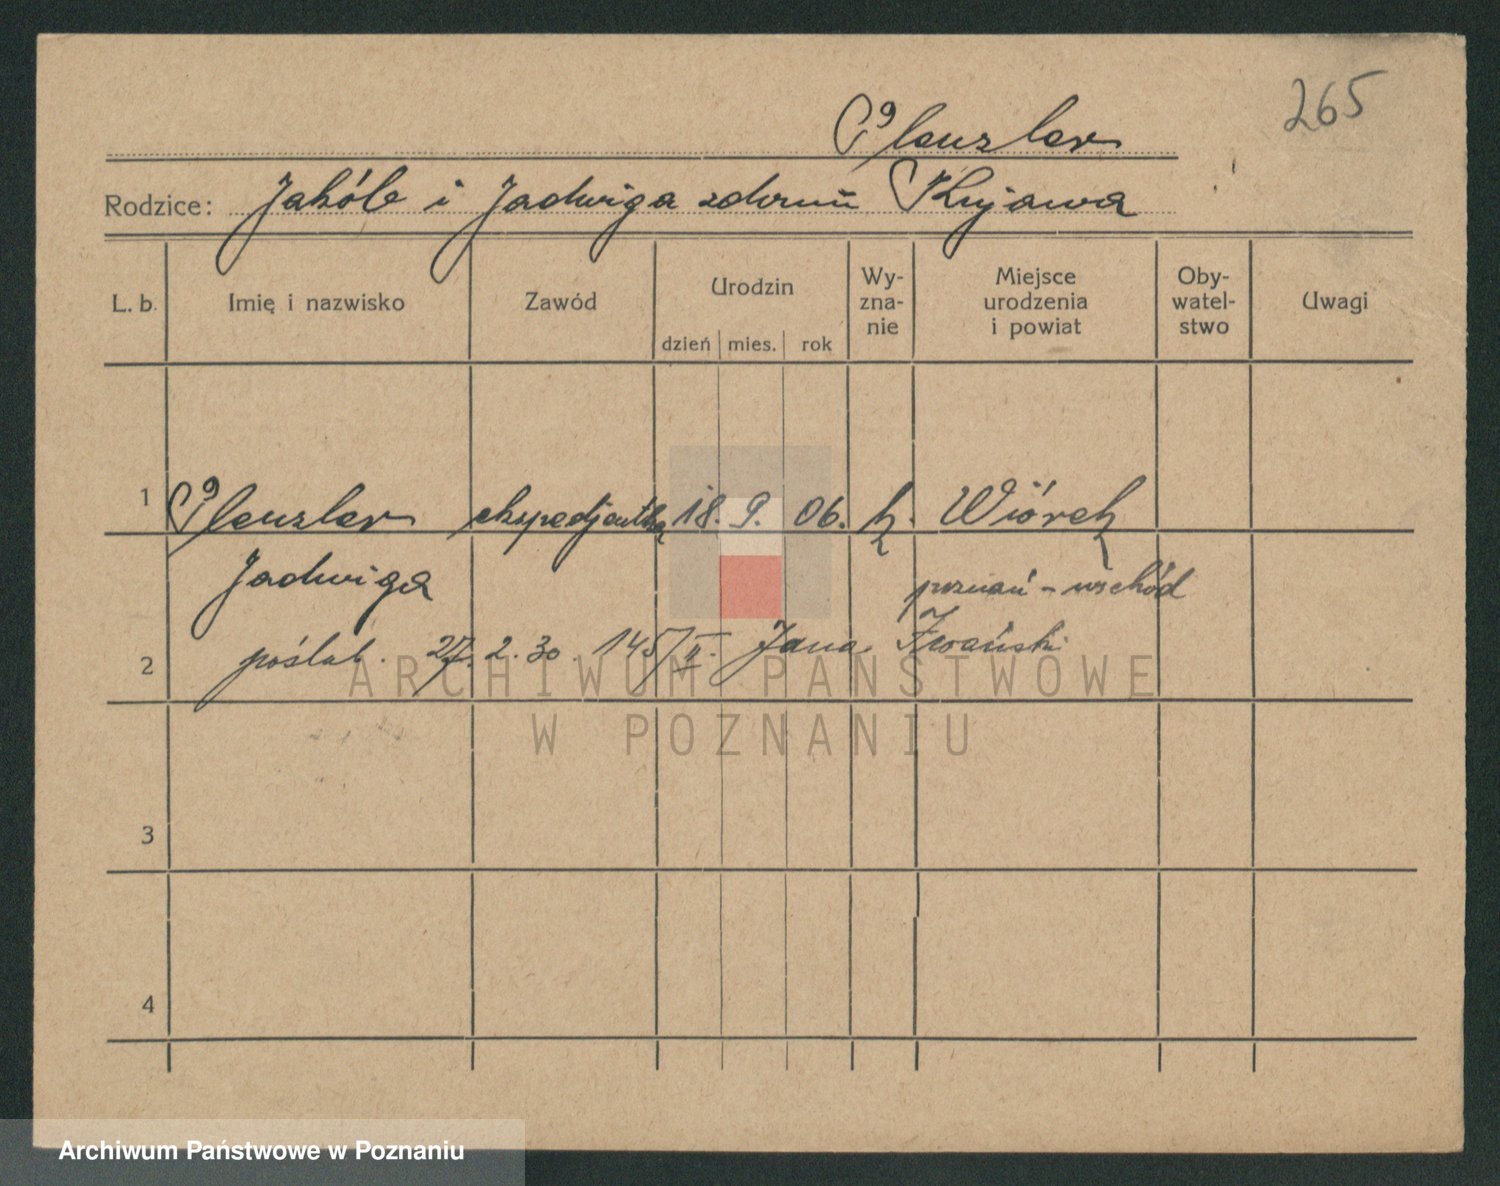 265
Plenzler
Rodzice: Jakób i Jadwiga zdomu Kujawa
L. b. Imię i nazwisko Zawód Urodzin dzień mies. rok Wy-zna-nie Miejsce urodzenia i powiat Oby-watel-stwo Uwagi
1 Plenzler ekspedjentka 18. 9. 06. k. Wiórek
Jadwiga poznań - wschód
2 poślub. 27. 2. 30. 145/II. Jana
3
4
ARCHIWUM PAŃSTWOWE
W POZNANIU
Archiwum Państwowe w Poznaniu